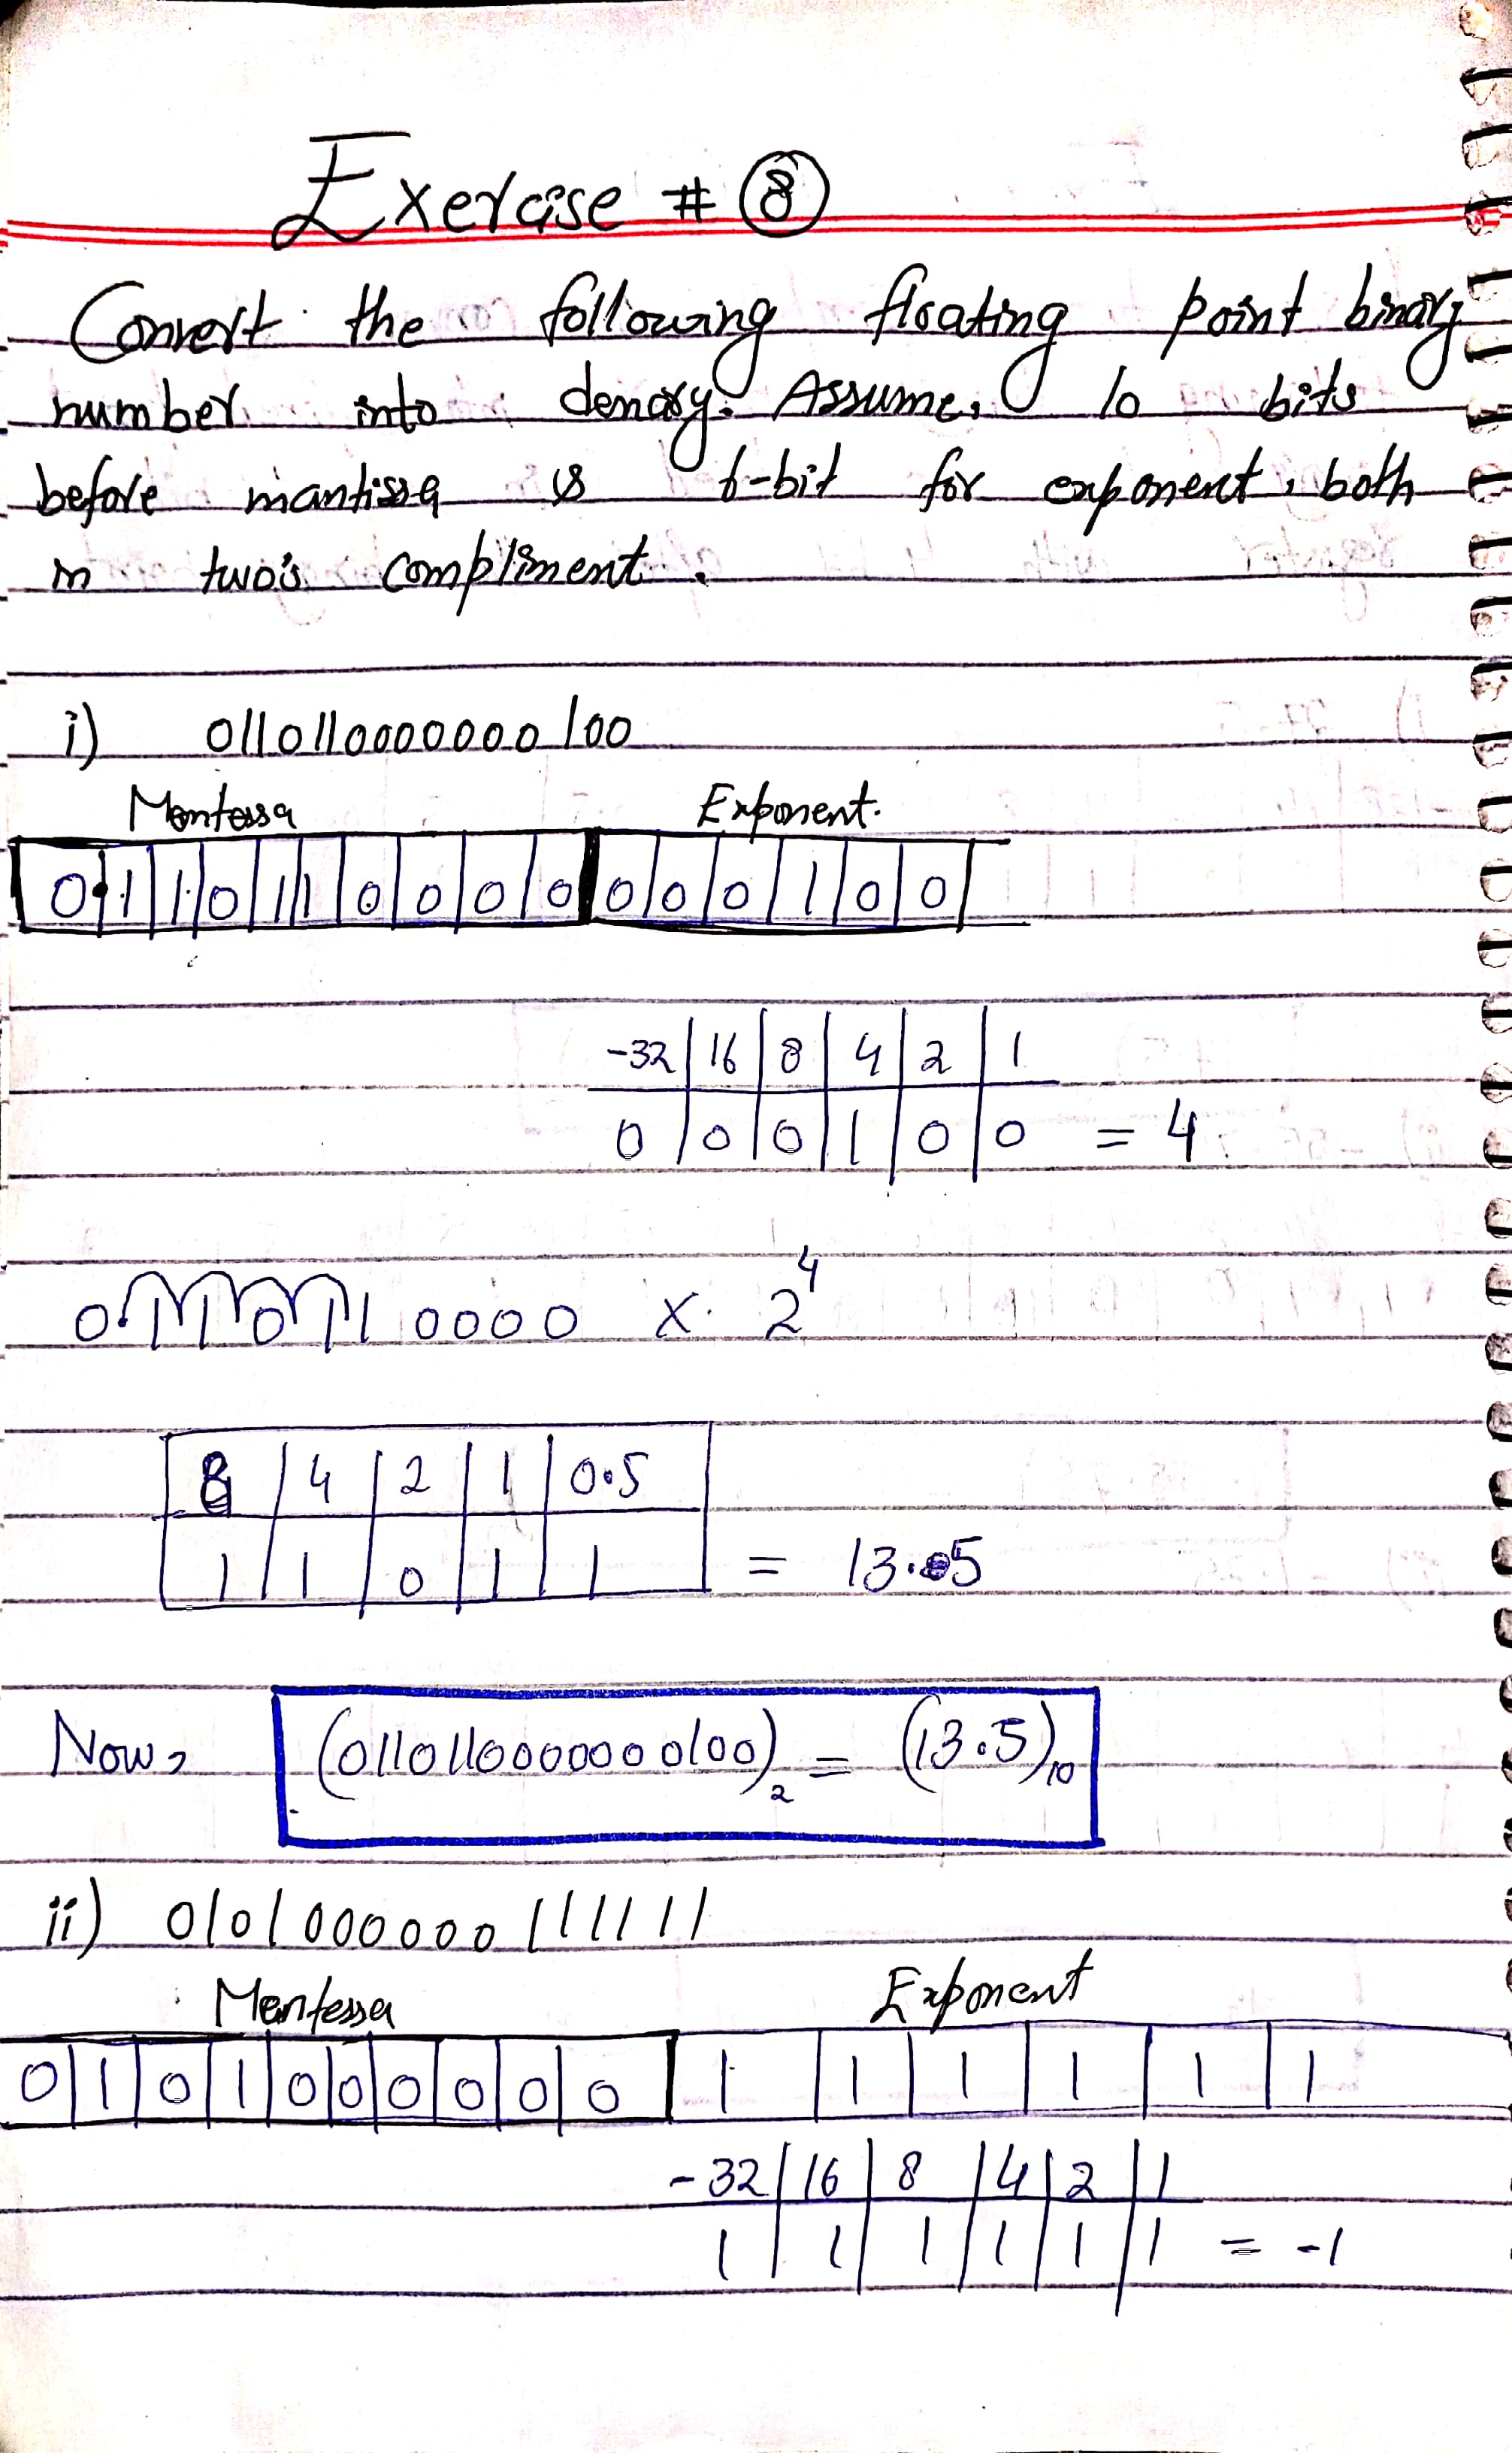 Exercise # 8
Convert the following floating point binary
number into denary. Assume, 10 bits
before mantissa & 6-bit for exponent, both
in two's compliment.
i) 0110110000000100
Mentessa Exponent.
0.1 1 0 1 1 0 0 0 0 0 0 0 1 0 0
-32 16 8 4 2 1
0 0 0 1 0 0 = 4
0.110110000 x 2^4
8 4 2 1 0.5
1 1 0 1 1 = 13.5
Now, (0110110000000100)₂ = (13.5)₁₀
ii) 0101000000111111
Mentessa Exponent
0 1 0 1 0 0 0 0 0 0 1 1 1 1 1 1
-32 16 8 4 2 1
1 1 1 1 1 1 = -1